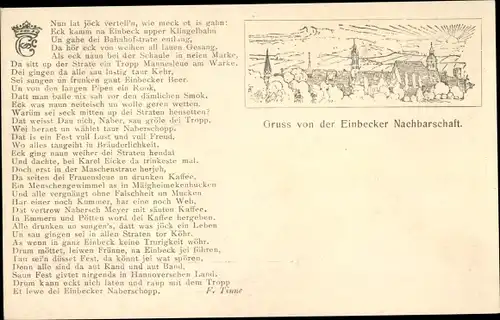 Nun lat jöck vertell'n, wie meck et is gahn:
Eck kamm na Einbeck upper Klingelbahn
Un gahe dei Bahnhofstrate entlang,
Da hör eck von weihen all lauen Gesang.
Als eck naun bei der Schaule in neien Marke,
Da sitt up der Strate ein Tropp Mannesleue am Warke.
Dei gingen da alle sau lustig taur Kehr,
Sei sungen un drunken gaut Einbecker Beer.
Un von den langen Pipen ein Rook,
Datt man balle nix sah vor den dämlichen Smok.
Eck was naun neiteisch un wolle geren wetten.
Warüm sei seck mitten up dei Straten hensetten?
Dat weisst Dau nich, Naber, sau gröle dei Tropp,
Wei heraet un wählet taur Naberschopp.
Dat is ein Fest vull Lust und vull Freud,
Wo alles taugeiht in Bräuderlichkeit.
Eck ging naun weiher dei Straten hendal
Und dachte, bei Karel Eicke da trinkeste mal.
Doch erst in der Maschenstrate herjuh,
Da seiten dei Frauenslene an drunken Kaffee,
Ein Menschengewimmel as in Mäigheimekenhucken
Und alle vergnäugt ohne Falschheit un Mucken
Har einer noch Kummer, har eine noch Weh,
Dat vertrow Nabersch Meyer mit säuten Kaffee.
In Emmern und Pötten word dei Kaffee bergeben.
Alle drunken un sungen's, datt was jöck ein Leben
Un sau gingen sei in allen Straten tor Köhr.
As wenn in ganz Einbeck keine Trurigkeit wöhr.
Drum möttet, leiwen Frünne, na Einbeck jei führen,
Tau sei'n düsset Fest, da könnt jei wat spören,
Denn alle sind da aut Rand und aut Band,
Saun Fest givtet nirgends in Hannoverschen Land.
Drum kann eckt nich laten und raup mit dem Tropp
Et lewe dei Einbecker Naberschopp. F. Tinne
Gruss von der Einbecker Nachbarschaft.